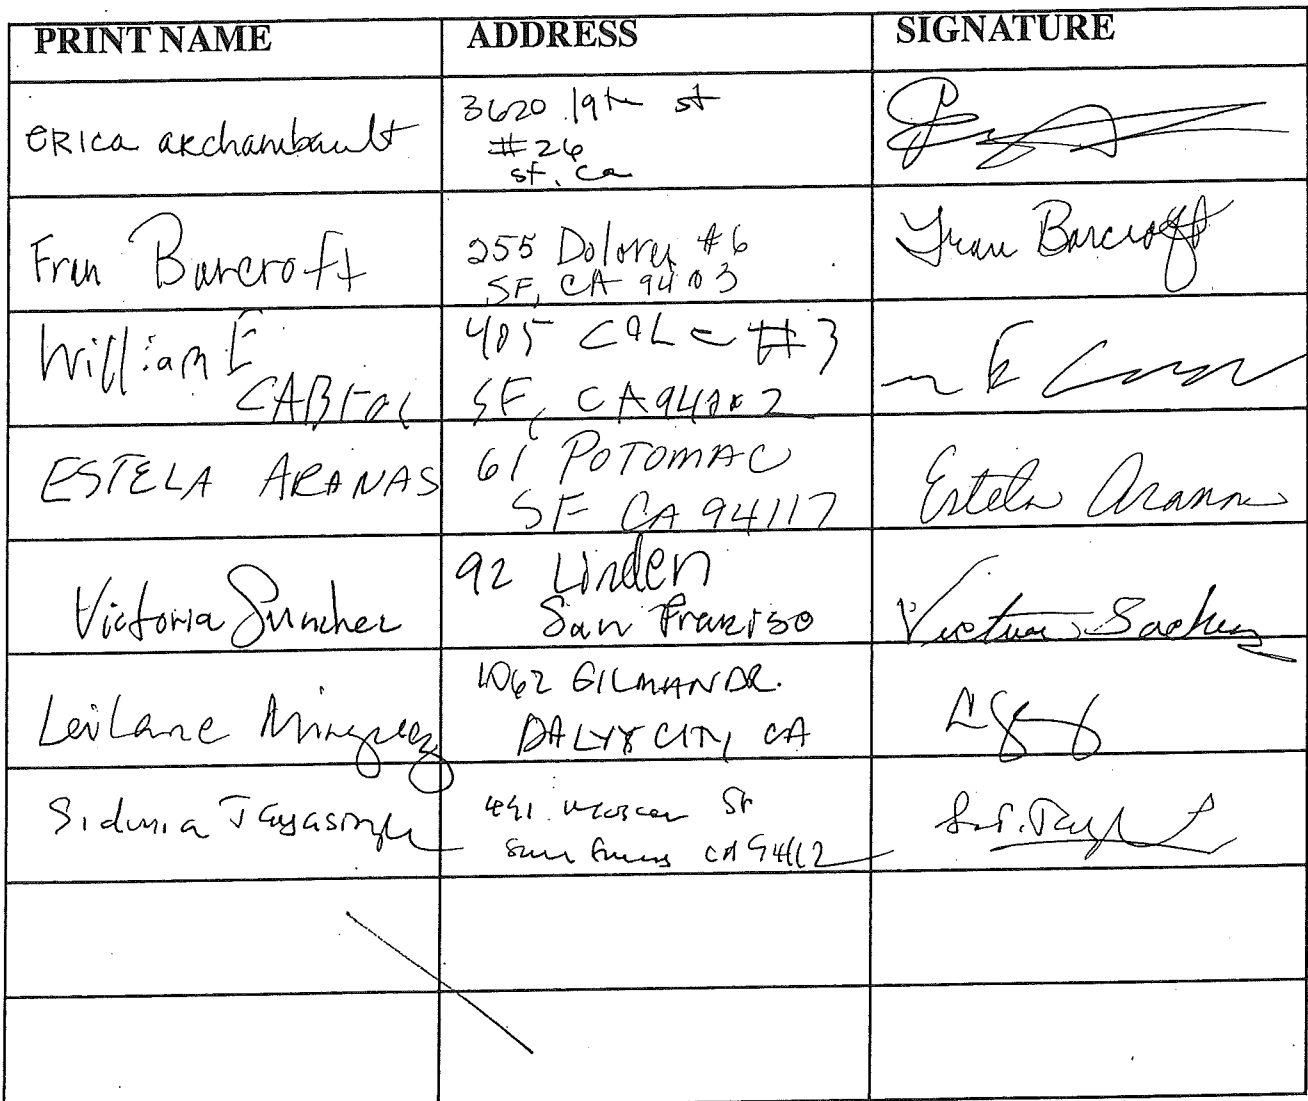 PRINT NAME ADDRESS SIGNATURE
ERICA ARchambault
3620 19th st
#26
sf, ca
Fran Barcroft
255 Dolores #6
SF, CA 94103
Fran Barcroft
William E
CABral
405 #3
SF, CA 94102
ESTELA ARANAS
61 POTOMAC
SF CA 94117
Estela Aranas
Victoria Sanchez
92 Linden
San
Victoria Sanchez
Leilane Minguez
1062 GILMAN DR.
DALY CITY CA
Sidonia Jayasingh
491 St
CA 94112